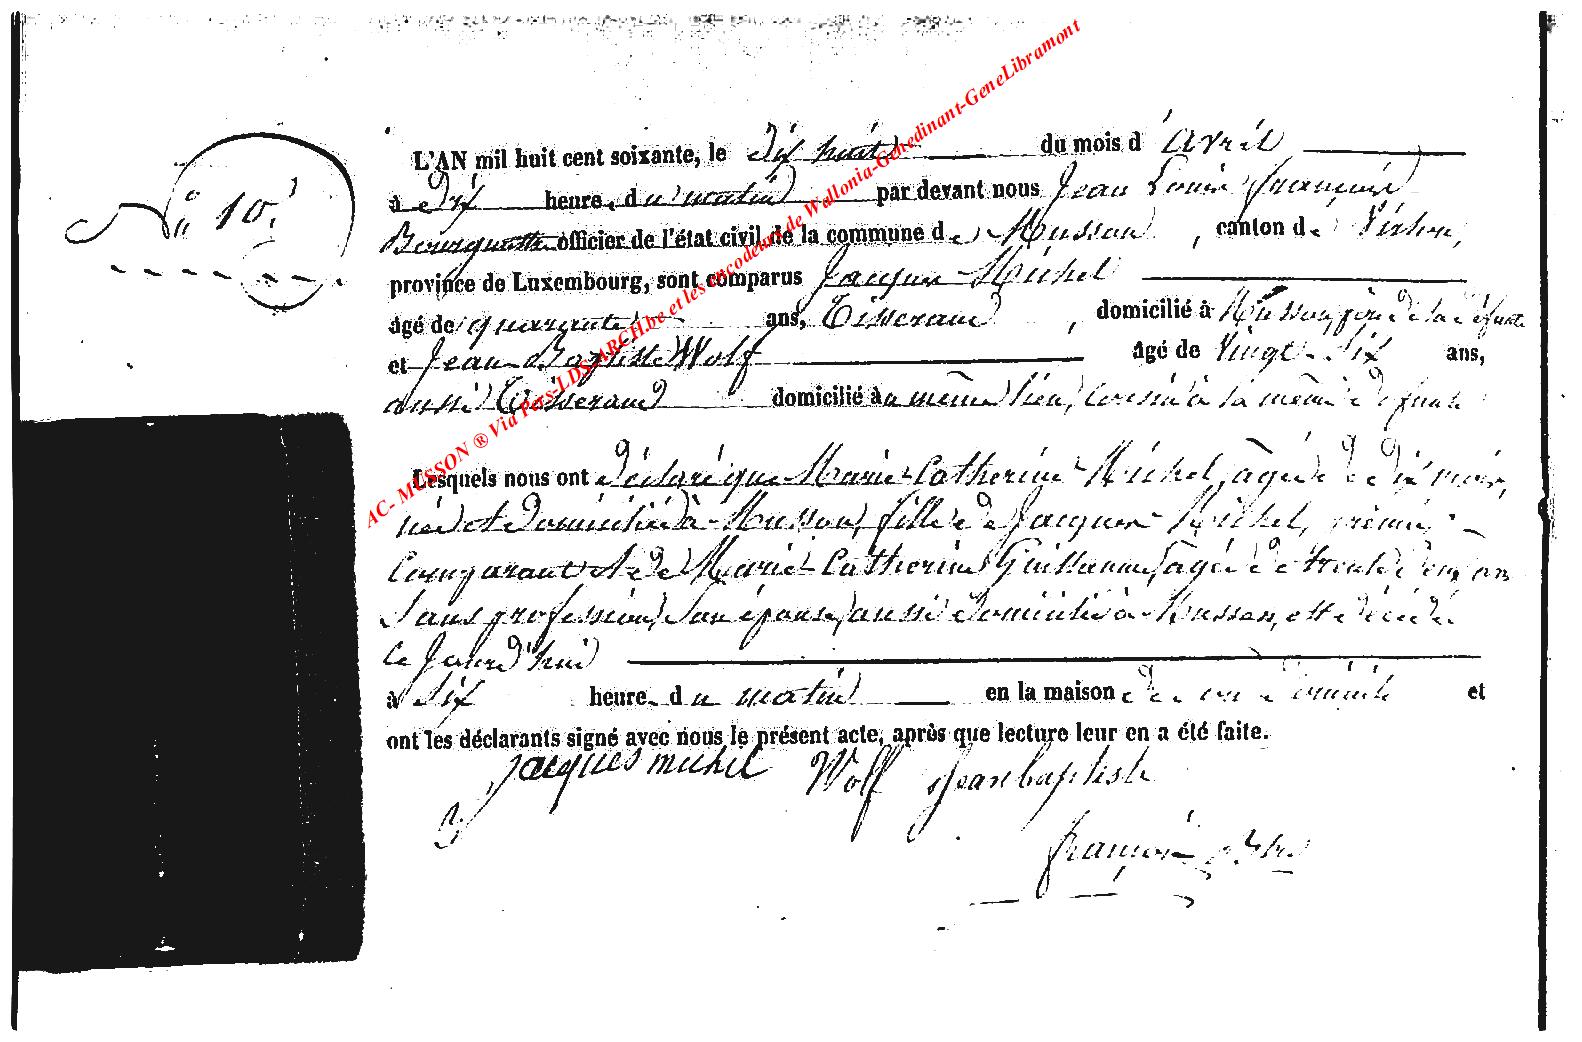 AC- MUSSON ® Via Pers-LDS-ARCH.be et les encodeurs de Wallonia-Genedinant-GeneLibramont
N° 10.
L'AN mil huit cent soixante, le dix huit du mois d'avril
à dix heure, du matin par devant nous Jean Louis François
officier de l'état civil de la commune de Musson, canton de Virton,
province de Luxembourg, sont comparus Jacques Michel
âgé de quarante ans, Tisserand, domicilié à Musson, père de la défunte
et Jean Baptiste Wolf âgé de vingt six ans,
aussi Tisserand domicilié au même lieu, à la même défunte
Lesquels nous ont déclaré que Marie Catherine Michel, âgée de dix mois,
née et domiciliée à Musson, fille de Jacques Michel, premier
Comparant et de Marie Catherine Guillaume, âgée de trente deux ans
Sans profession, Son épouse, aussi domiciliée à Musson, est décédée
ce jourd'hui
à Six heure, du matin en la maison de son domicile et
ont les déclarants signé avec nous le présent acte, après que lecture leur en a été faite.
jacques michel Wolf Jean baptiste
françois